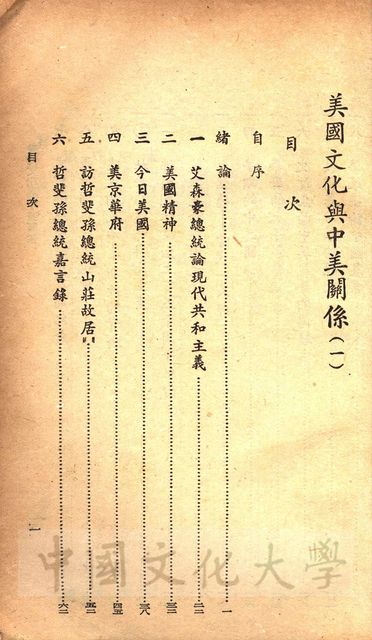 美國文化與中美關係(一)
目次
自序
緒論……一
一 艾森豪總統論現代共和主義……二二
二 美國精神……三二
三 今日美國……三八
四 美京華府……四五
五 訪哲斐孫總統山莊故居……五二
六 哲斐孫總統嘉言錄……六二
目次
一
中國文化大學